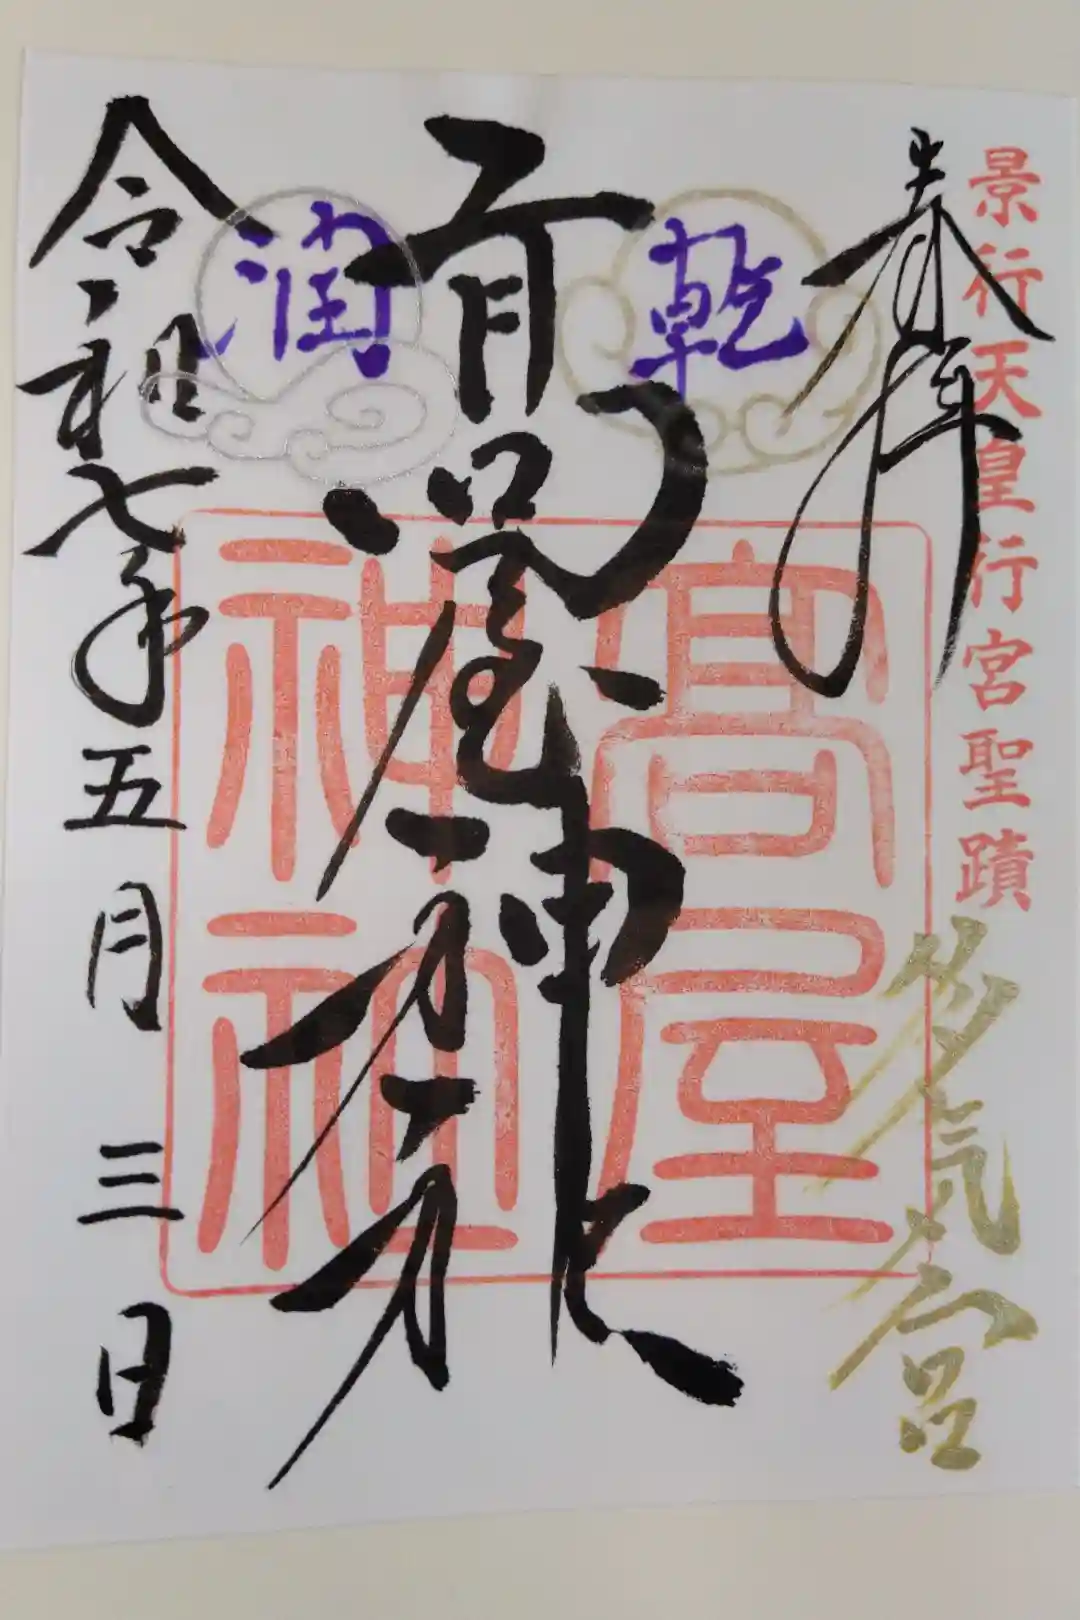 景行天皇行宮聖蹟
奉拝
乾
潤
高屋神社
高屋
神社
気宮
令和七年五月三日